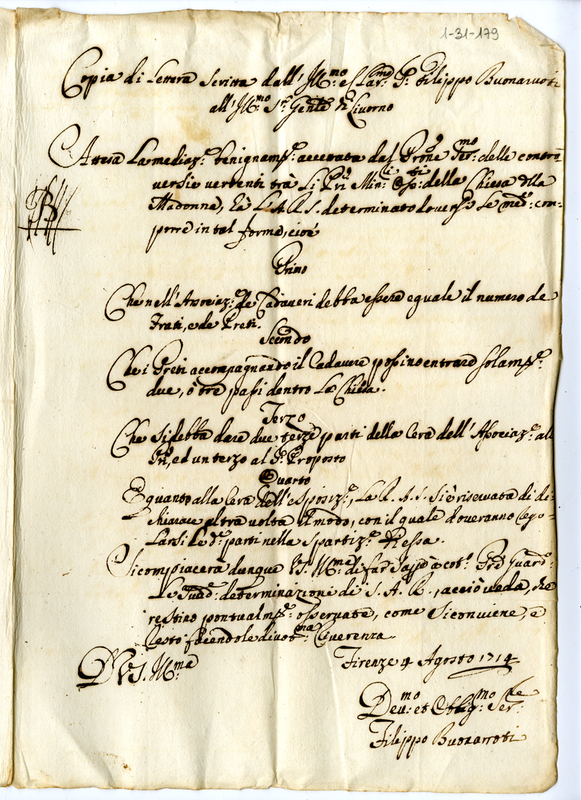 1-31-179
Copia di Lettera Scritta dall' Ill.mo e Clar.mo S.r Filippo Buonarroti
all' Ill.mo S.r Gov.re di Livorno
Attesa La mediaz.e benignam.te accettata dal Pron.e Ser.mo delle contro
versie vertenti trà Li PP.ri Min.i Oss.ti della Chiesa della
Madonna, hà L'A. R. S. determinato doversi Le med.e com-
porre in tal forma, cioè
Primo
Che nell'Associaz.e de Cadaveri debba essere eguale il numero de
Frati, e de Preti.
Secondo
Che i Preti accompagnando il Cadavere possino entrare solam.te
due, ò tre passi dentro La Chiesa.
Terzo
Che Si debba dare due terze parti della Cera dell'Associaz.e al
ed un terzo al S.r Proposto
Quarto
E quanto alla Cera dell'esposiz.e, La R. A. S. si è riservata di di-
chiarare altra volta il modo, con il quale doveranno rego-
Larsi Le d.e parti nella Spartiz.e d'essa.
Si compiacerà dunque VS. Ill.ma di far Sapere à cot.o Pre Guard.o
Le Sudd.e determinazione di S. A. R., acciò veda, che
restino pontualm.te osservate, come si conviene, e
resto facendole divot.ma Reverenza.
Di VS. Ill.ma
Firenze 4 Agosto 1714
Dev.mo et Obblig.mo Ser.re
Filippo Buonarroti